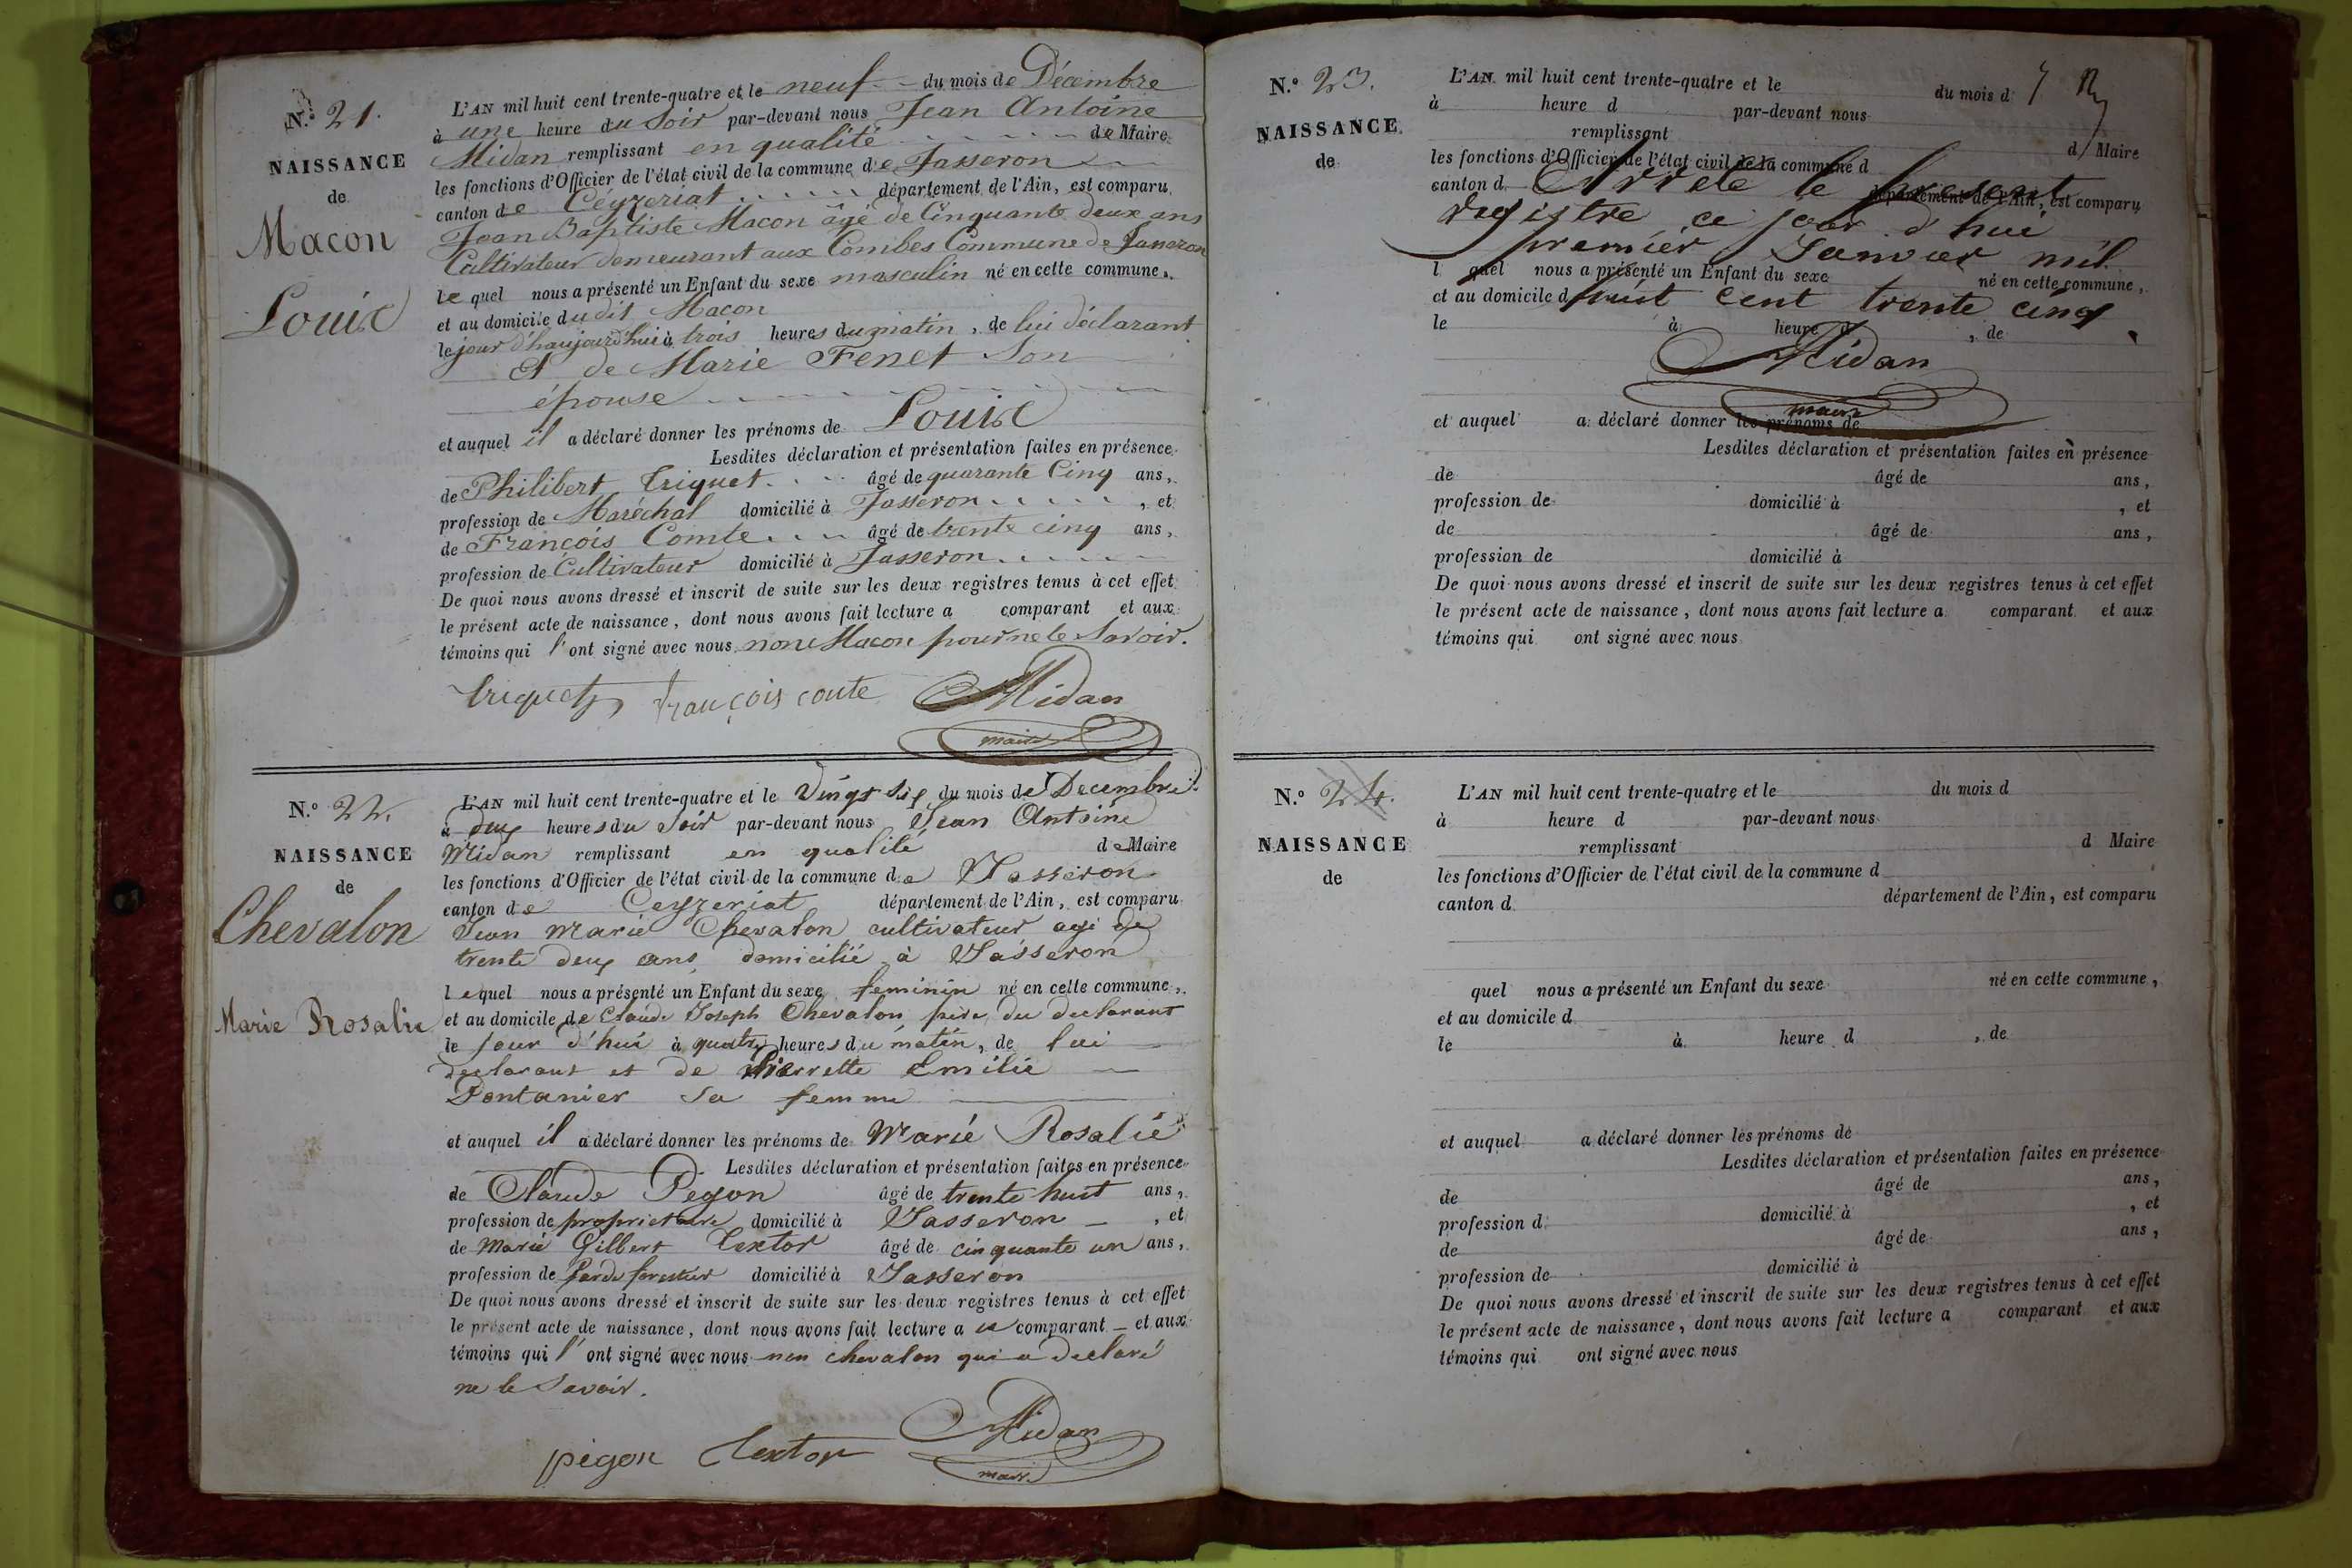 N.o 21.
NAISSANCE
de
Macon
Louis
L'AN mil huit cent trente-quatre et le neuf du mois de Décembre
à une heure du Soir par-devant nous Jean Antoine
Midan remplissant en qualité de Maire
les fonctions d'Officier de l'état civil de la commune de Jasseron
canton de Céyzeriat département de l'Ain, est comparu
Jean Baptiste Macon âgé de Cinquante deux ans
Cultivateur demeurant aux Combes Commune de Jasseron
le quel nous a présenté un Enfant du sexe masculin né en cette commune,
et au domicile dudit Macon
le jour d'haujourd'hui à trois heures du matin, de lui déclarant
et de Marie Fenet Son
épouse
et auquel il a déclaré donner les prénoms de Louis
Lesdites déclaration et présentation faites en présence
de Philibert Triquet âgé de quarante Cinq ans,
profession de Maréchal domicilié à Jasseron, et
de François Comte âgé de trente cinq ans,
profession de Cultivateur domicilié à Jasseron
De quoi nous avons dressé et inscrit de suite sur les deux registres tenus à cet effet
le présent acte de naissance, dont nous avons fait lecture a comparant et aux
témoins qui l'ont signé avec nous non Macon pour ne le Savoir.
triquet françois conte Midan
maire
N.o 22.
NAISSANCE
de
Chevalon
Marie Rosalie
L'AN mil huit cent trente-quatre et le vingt six du mois de Decembre
à deux heures du Soir par-devant nous Jean Antoine
Midan remplissant en qualité de Maire
les fonctions d'Officier de l'état civil de la commune de Jasseron
canton de Ceyzeriat département de l'Ain, est comparu
Jean Marie Chevalon cultivateur agé de
trente deux ans domicilié à Jasseron
lequel nous a présenté un Enfant du sexe feminin né en cette commune,
et au domicile de Claude Joseph Chevalon père du declarant
le jour d'hui à quatre heures du matin, de lui
declarant et de Pierrette Emilie
Pontanier sa femme
et auquel il a déclaré donner les prénoms de Marie Rosalie
Lesdites déclaration et présentation faites en présence
de Claude Pegon âgé de trente huit ans,
profession de proprietaire domicilié à Jasseron, et
de Marie Gilbert Textor âgé de cinquante un ans,
profession de garde forestier domicilié à Jasseron
De quoi nous avons dressé et inscrit de suite sur les deux registres tenus à cet effet
le présent acte de naissance, dont nous avons fait lecture a comparant et aux
témoins qui l'ont signé avec nous non chevalon qui a declaré
ne le Savoir.
pegon Textor Midan
maire
N.o 23.
NAISSANCE
de
L'AN mil huit cent trente-quatre et le du mois d
à heure d par-devant nous
remplissant d Maire
les fonctions d'Officier de l'état civil de la commune d
canton d département de l'Ain, est comparu
Arrêté le present
registre ce jour d'hui
premier Janvier mil
l quel nous a présenté un Enfant du sexe né en cette commune,
et au domicile d
huit cent trente cinq
le à heure d, de
Midan
maire
et auquel a déclaré donner les prénoms de
Lesdites déclaration et présentation faites en présence
de âgé de ans,
profession de domicilié à, et
de âgé de ans,
profession de domicilié à
De quoi nous avons dressé et inscrit de suite sur les deux registres tenus à cet effet
le présent acte de naissance, dont nous avons fait lecture a comparant et aux
témoins qui ont signé avec nous
N.o 24.
NAISSANCE
de
L'AN mil huit cent trente-quatre et le du mois d
à heure d par-devant nous
remplissant d Maire
les fonctions d'Officier de l'état civil de la commune d
canton d département de l'Ain, est comparu
quel nous a présenté un Enfant du sexe né en cette commune,
et au domicile d
le à heure d, de
et auquel a déclaré donner les prénoms de
Lesdites déclaration et présentation faites en présence
de âgé de ans,
profession d domicilié à, et
de âgé de ans,
profession de domicilié à
De quoi nous avons dressé et inscrit de suite sur les deux registres tenus à cet effet
le présent acte de naissance, dont nous avons fait lecture a comparant et aux
témoins qui ont signé avec nous